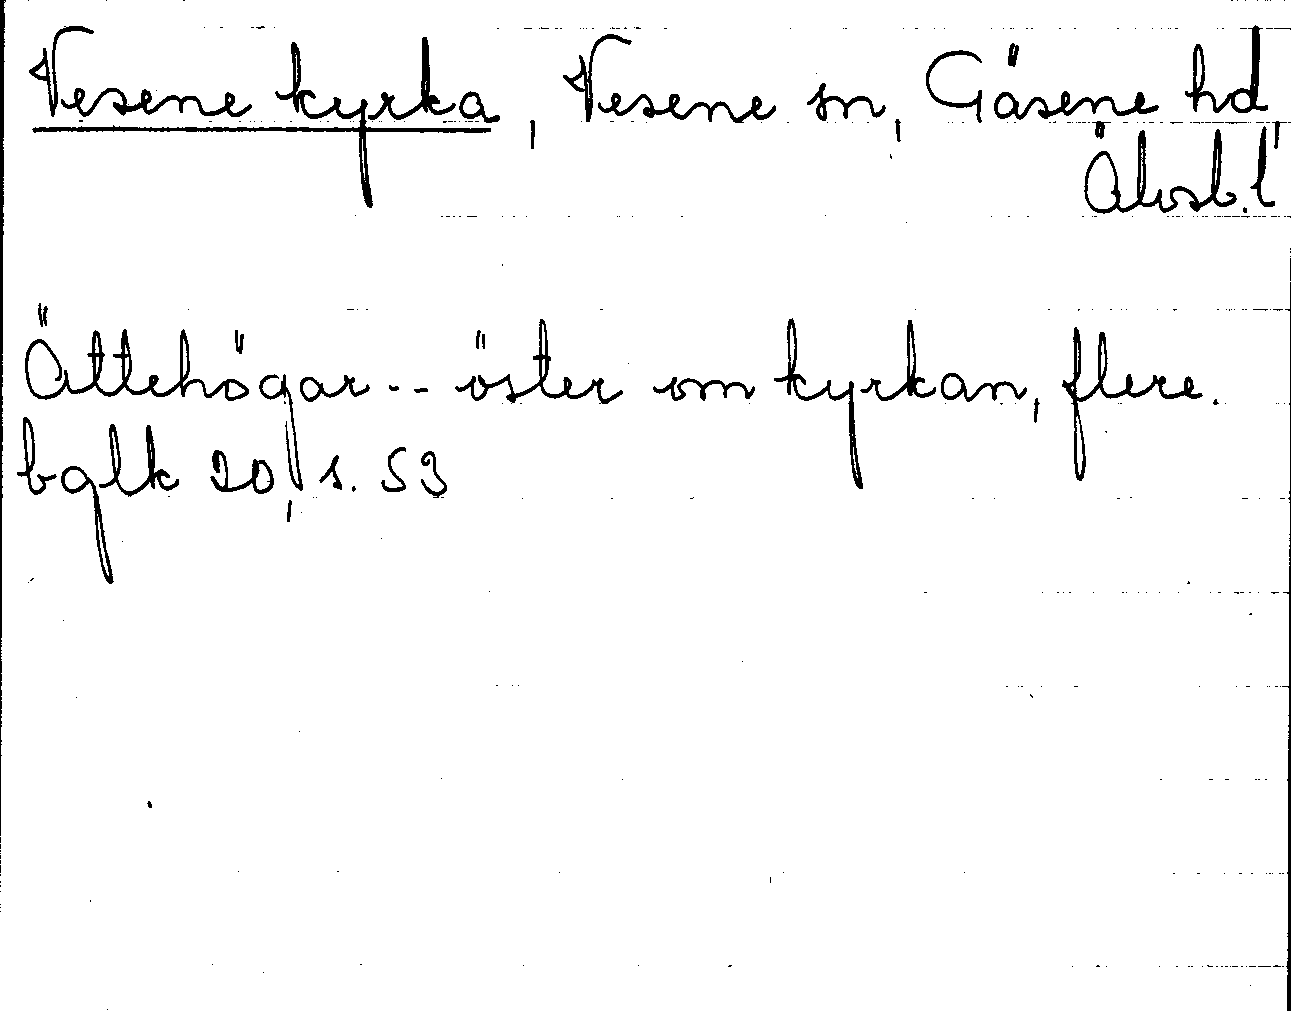 Vesene kyrka, Vesene sn, Gäsene hd,
Älvsb.l
Ättehögar -- öster om kyrkan, flere.
bglk 20, s. 53